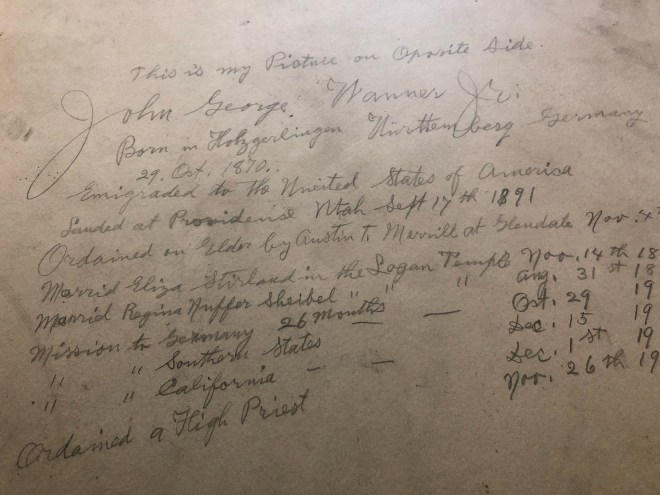 This is my Picture on Oposite Side.
John George Wanner Jr.
Born in Holzgerlingen Würthemberg Germany
29. Oct. 1870.
Emigraded to the Uneited States of Amerisa
Landed at Providense Utah Sept 17th 1891
Ordained an Elder by Austin T. Merrill at Glendale Nov. 4
Marrid Eliza Stirland in the Logan Temple Nov. 14th 18
Marrid Regina Nuffer Sheibel " " " Aug. 31st 18
Mission to Germany 26 Months — — Oct. 29 19
" " Southern States Dec. 15 19
" " California — — Dec. 1st 19
Ordained a High Priest Nov. 26th 19